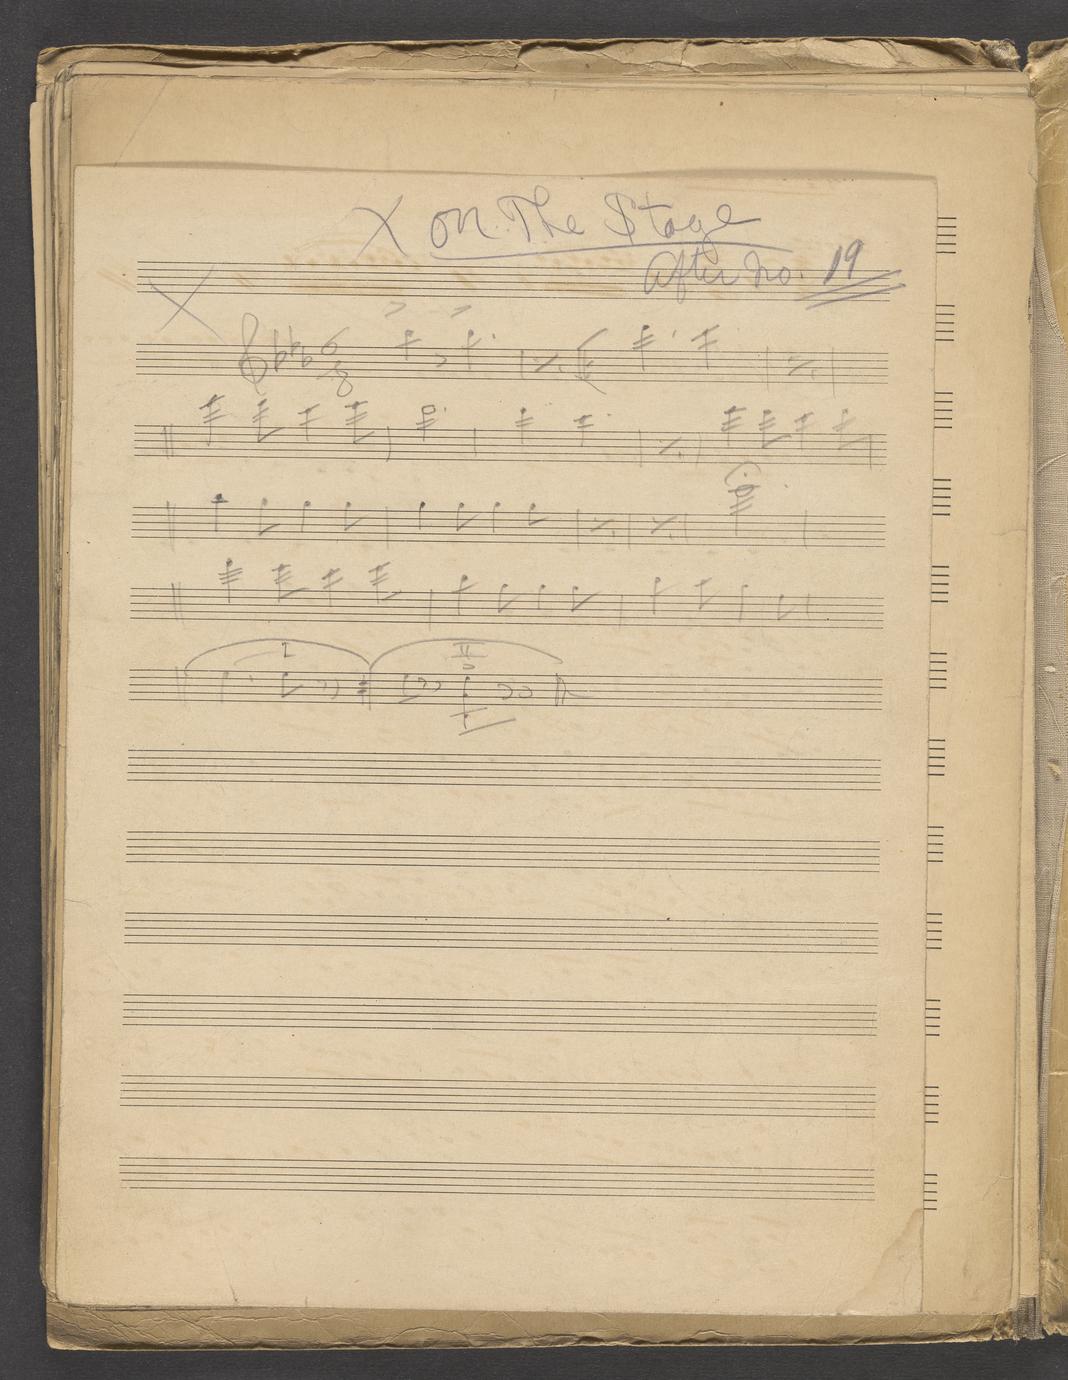 X On The Stage
After No. 19
X
6
8
I
II